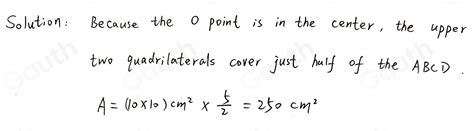 Solution: Because the O point is in the center, the upper
two quadrilaterals cover just half of the ABCD.
A = (10×10) cm² × 5/2 = 250 cm²